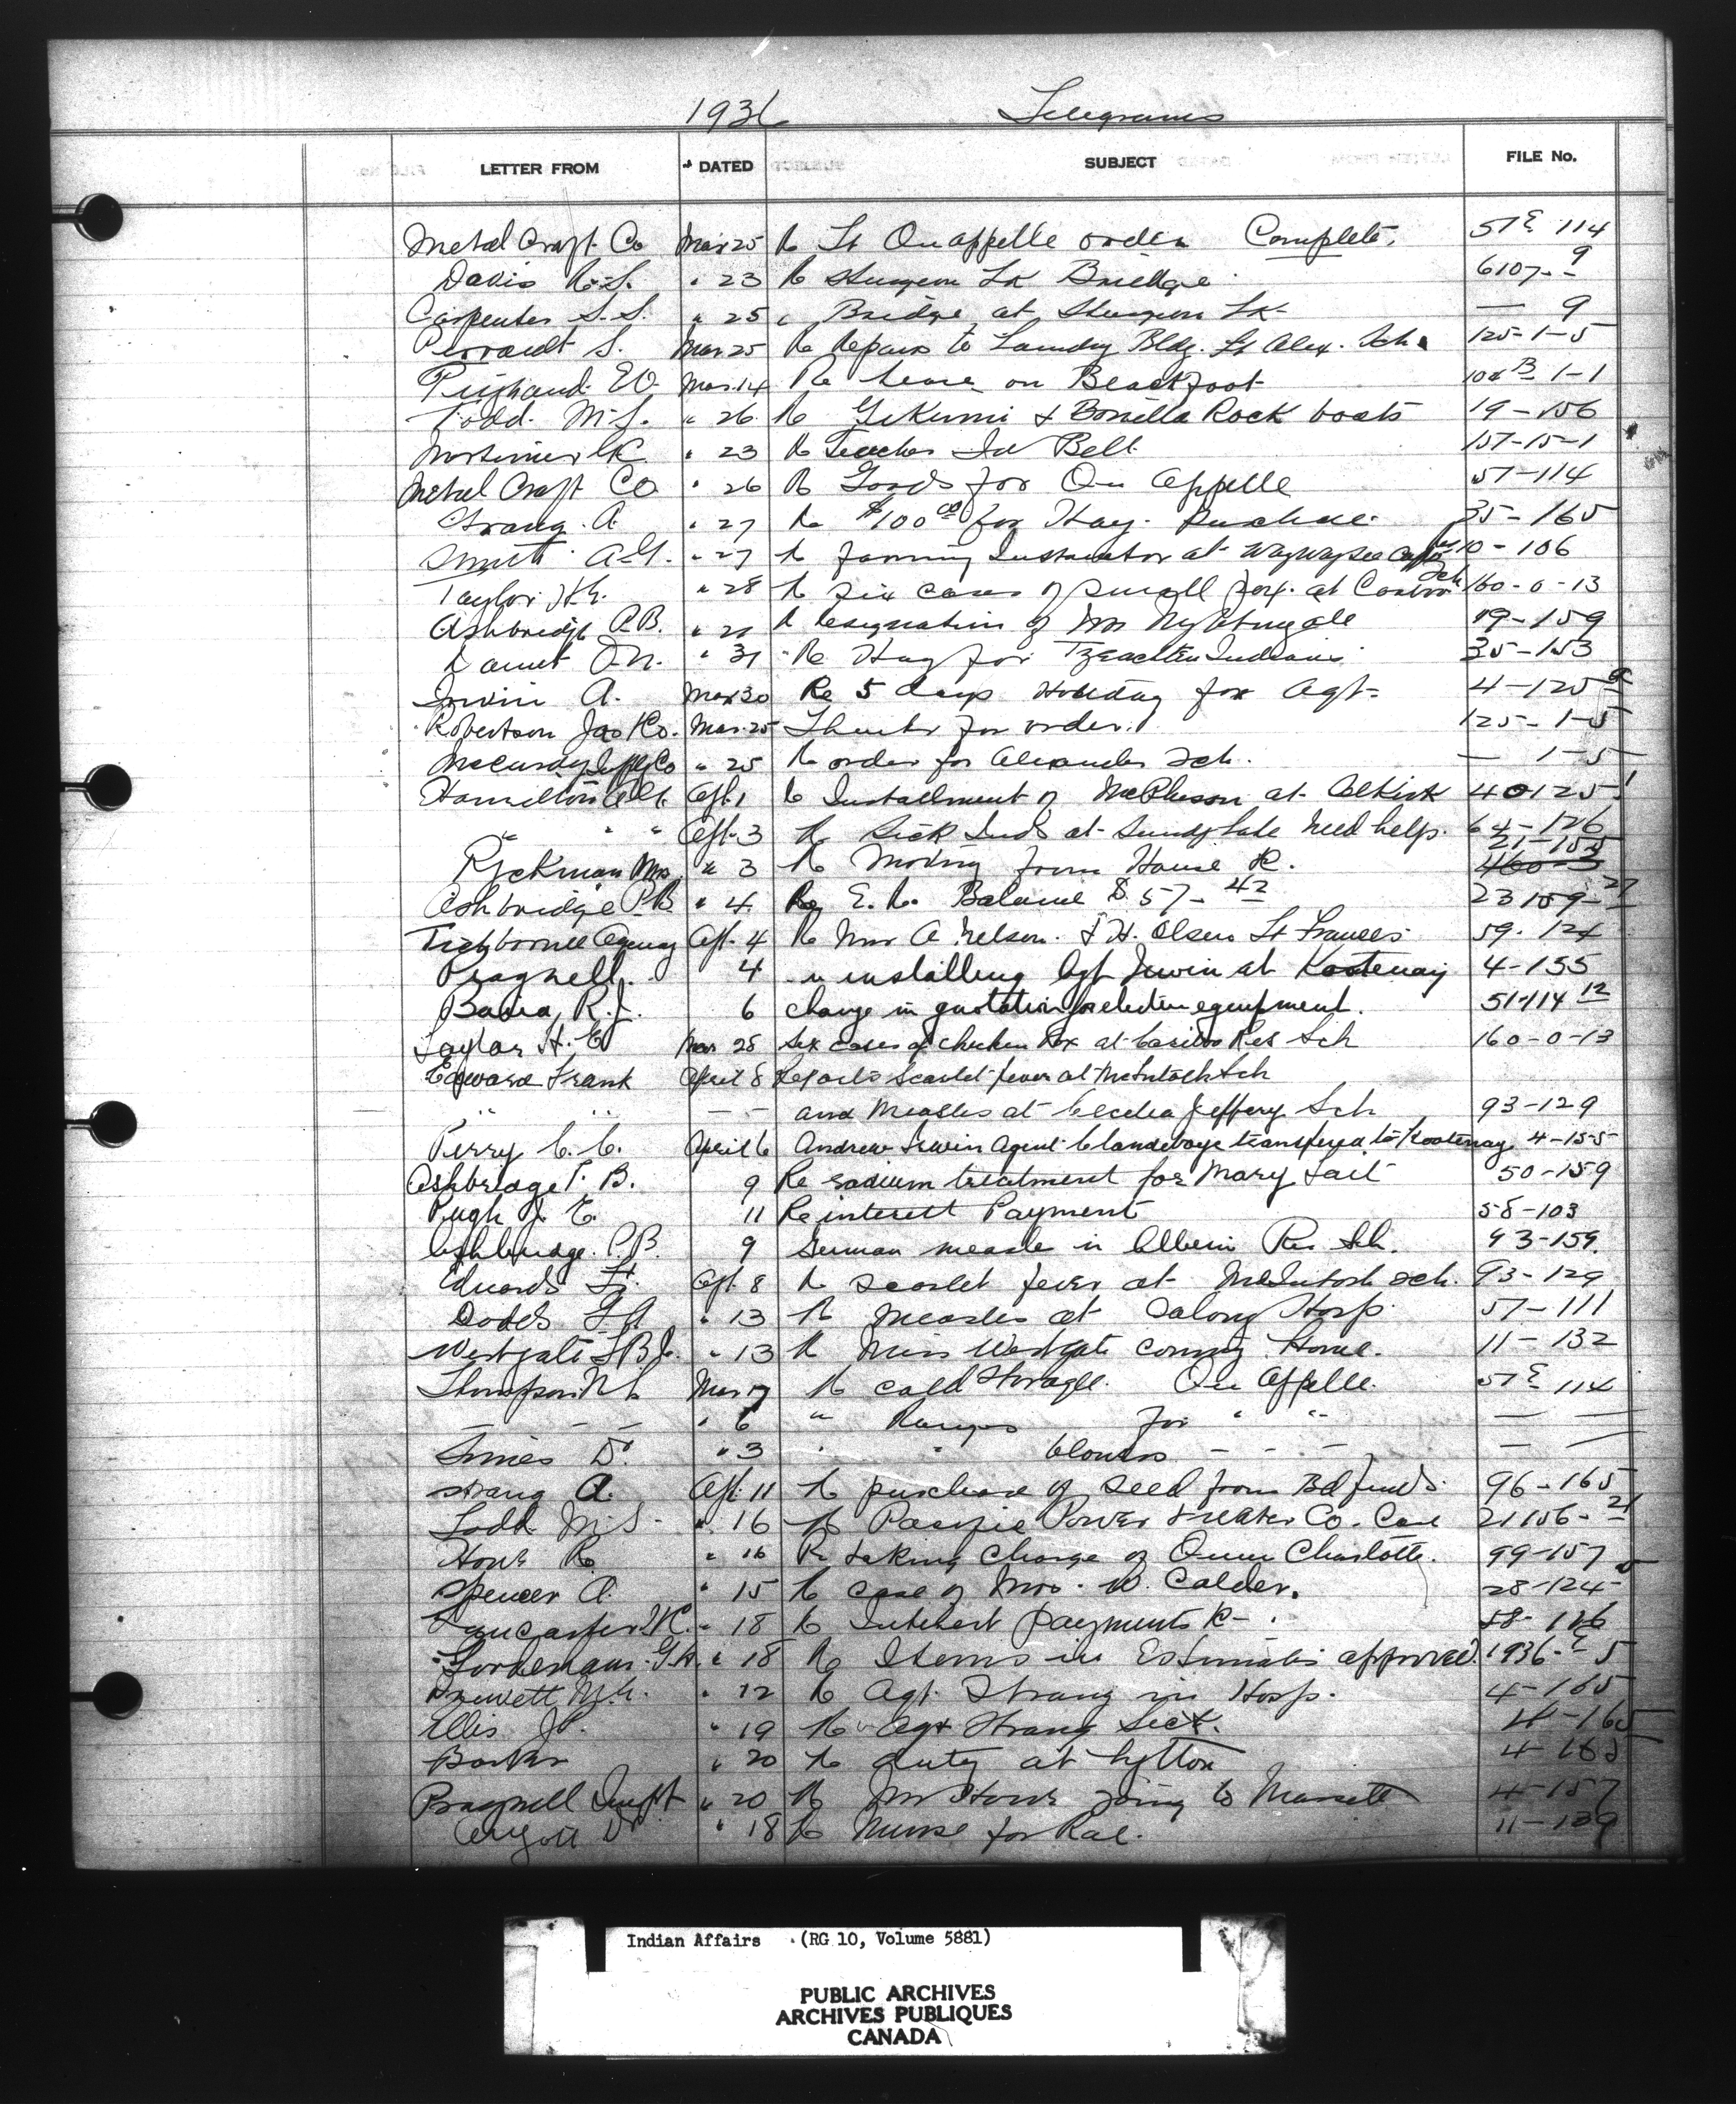 1936 Telegrams
LETTER FROM DATED SUBJECT FILE No.
Metal Craft Co Mar 25 Re Ft Quappelle order Complete. 51E 114
Davis R.S. " 23 Re Sturgeon Lk Bridge 6107-9
Carpenter S.S. " 25 " Bridge at Sturgeon Lk — 9
Perrault S. Mar 25 Re Repairs to Laundry Bldg. St Alex. Sch. 125-1-5
Mar. 14 Re lease on Blackfoot 1-1
Todd. M.S. " 26 Re Gikumi & Bonilla Rock boats 19-156
Mortimer " 23 Re Teacher Bell 157-15-1
Metal Craft Co " 26 Re Goods for Qu Appelle 51-114
Strang. A. " 27 Re $100 00 for Hay. Purchase. 35-165
Smith A.G. " 27 Re farming Instructor at Waywayseecappo 10-106
Taylor H.E. " 28 Re six cases of small pox. at Sch 160-0-13
Ashbridge P.B. Re resignation of Nightingale 19-159
Daunt O.N. " 31 Re Hay for Tzeachten Indians 35-153
Irwin A. Mar 30 Re 5 days Holiday for Agt- 4-125
Robertson Jas Co. Mar. 25 Thanks for order. 125-1-5
McCurdy Co " 25 Re order for Alexander Sch. — 1-5
Hamilton A.G. Apl. 1 Re Installment of McPherson at Selkirk
" " " Apl. 3 Re Sick Inds at need help. 64-126
Ryckman Mrs " 3 Re Moving from House R. 21-155
Ashbridge P.B. " 4 Re E.R. Balance $57-42 23159-27
Tichborne Agency Apl. 4 Re A Nelson. & H. Olsen Ft Frances 59-124
Pragnell. 4 " installing Agt Irwin at Kootenay 4-155
R.J. 6 change in quotation for electric equipment. 51-114 12
Taylor H. E Mar 28 Six cases of chicken Pox at Cariboo Res Sch 160-0-13
Edward Frank April 8 Reports Scarlet fever at McIntosh Sch
" " — — and Measles at Cecelia Jeffery Sch 93-129
Perry C. C. April 6 Andrew Irwin Agent Clandeboye transferred to Kootenay 4-155
Ashbridge P. B. 9 Re radium treatment for Mary 50-159
Pugh J. E. 11 Re interest Payment 58-103
Ashbridge. P.B. 9 German measle in Alberni Res Sch. 93-159
Edwards Fr. Apl. 8 Re Scarlet fever at McIntosh Sch. 93-129
Dodds " 13 Re Measles at Hosp. 57-111
Westgate T.B.R. " 13 Re Miss Westgate coming Home. 11-132
Thompson Mar 17 Re cold storage. Qu Appelle. 51E 114
— — — " 6 " Ranges for " " — —
Innes " 3 " " — — — — —
Strang A. Apl. 11 Re purchase of seed from Bd funds. 96-165
Todd M.S. " 16 Re Pacific Power & Water Co. Case 21156-21
Howe R. " 16 Re taking charge of Queen Charlotte. 99-157
Spencer A. " 15 Re case of Mrs. W. Calder. 28-124
Lancaster " 18 Re Interest payments R- 58-126
" 18 Re Items in Estimates approved. 1936-E 5
" 12 Re Agt. Strang in Hosp. 4-165
Ellis " 19 Re Agt Strang Sick. 4-165
Barber " 20 Re duty at Lytton 4-165
Pragnell Inspt " 20 Re Mr Howe going to Massett 4-157
" 18 Re Nurse for Rae. 11-139
Indian Affairs (RG 10, Volume 5881)
PUBLIC ARCHIVES
ARCHIVES PUBLIQUES
CANADA